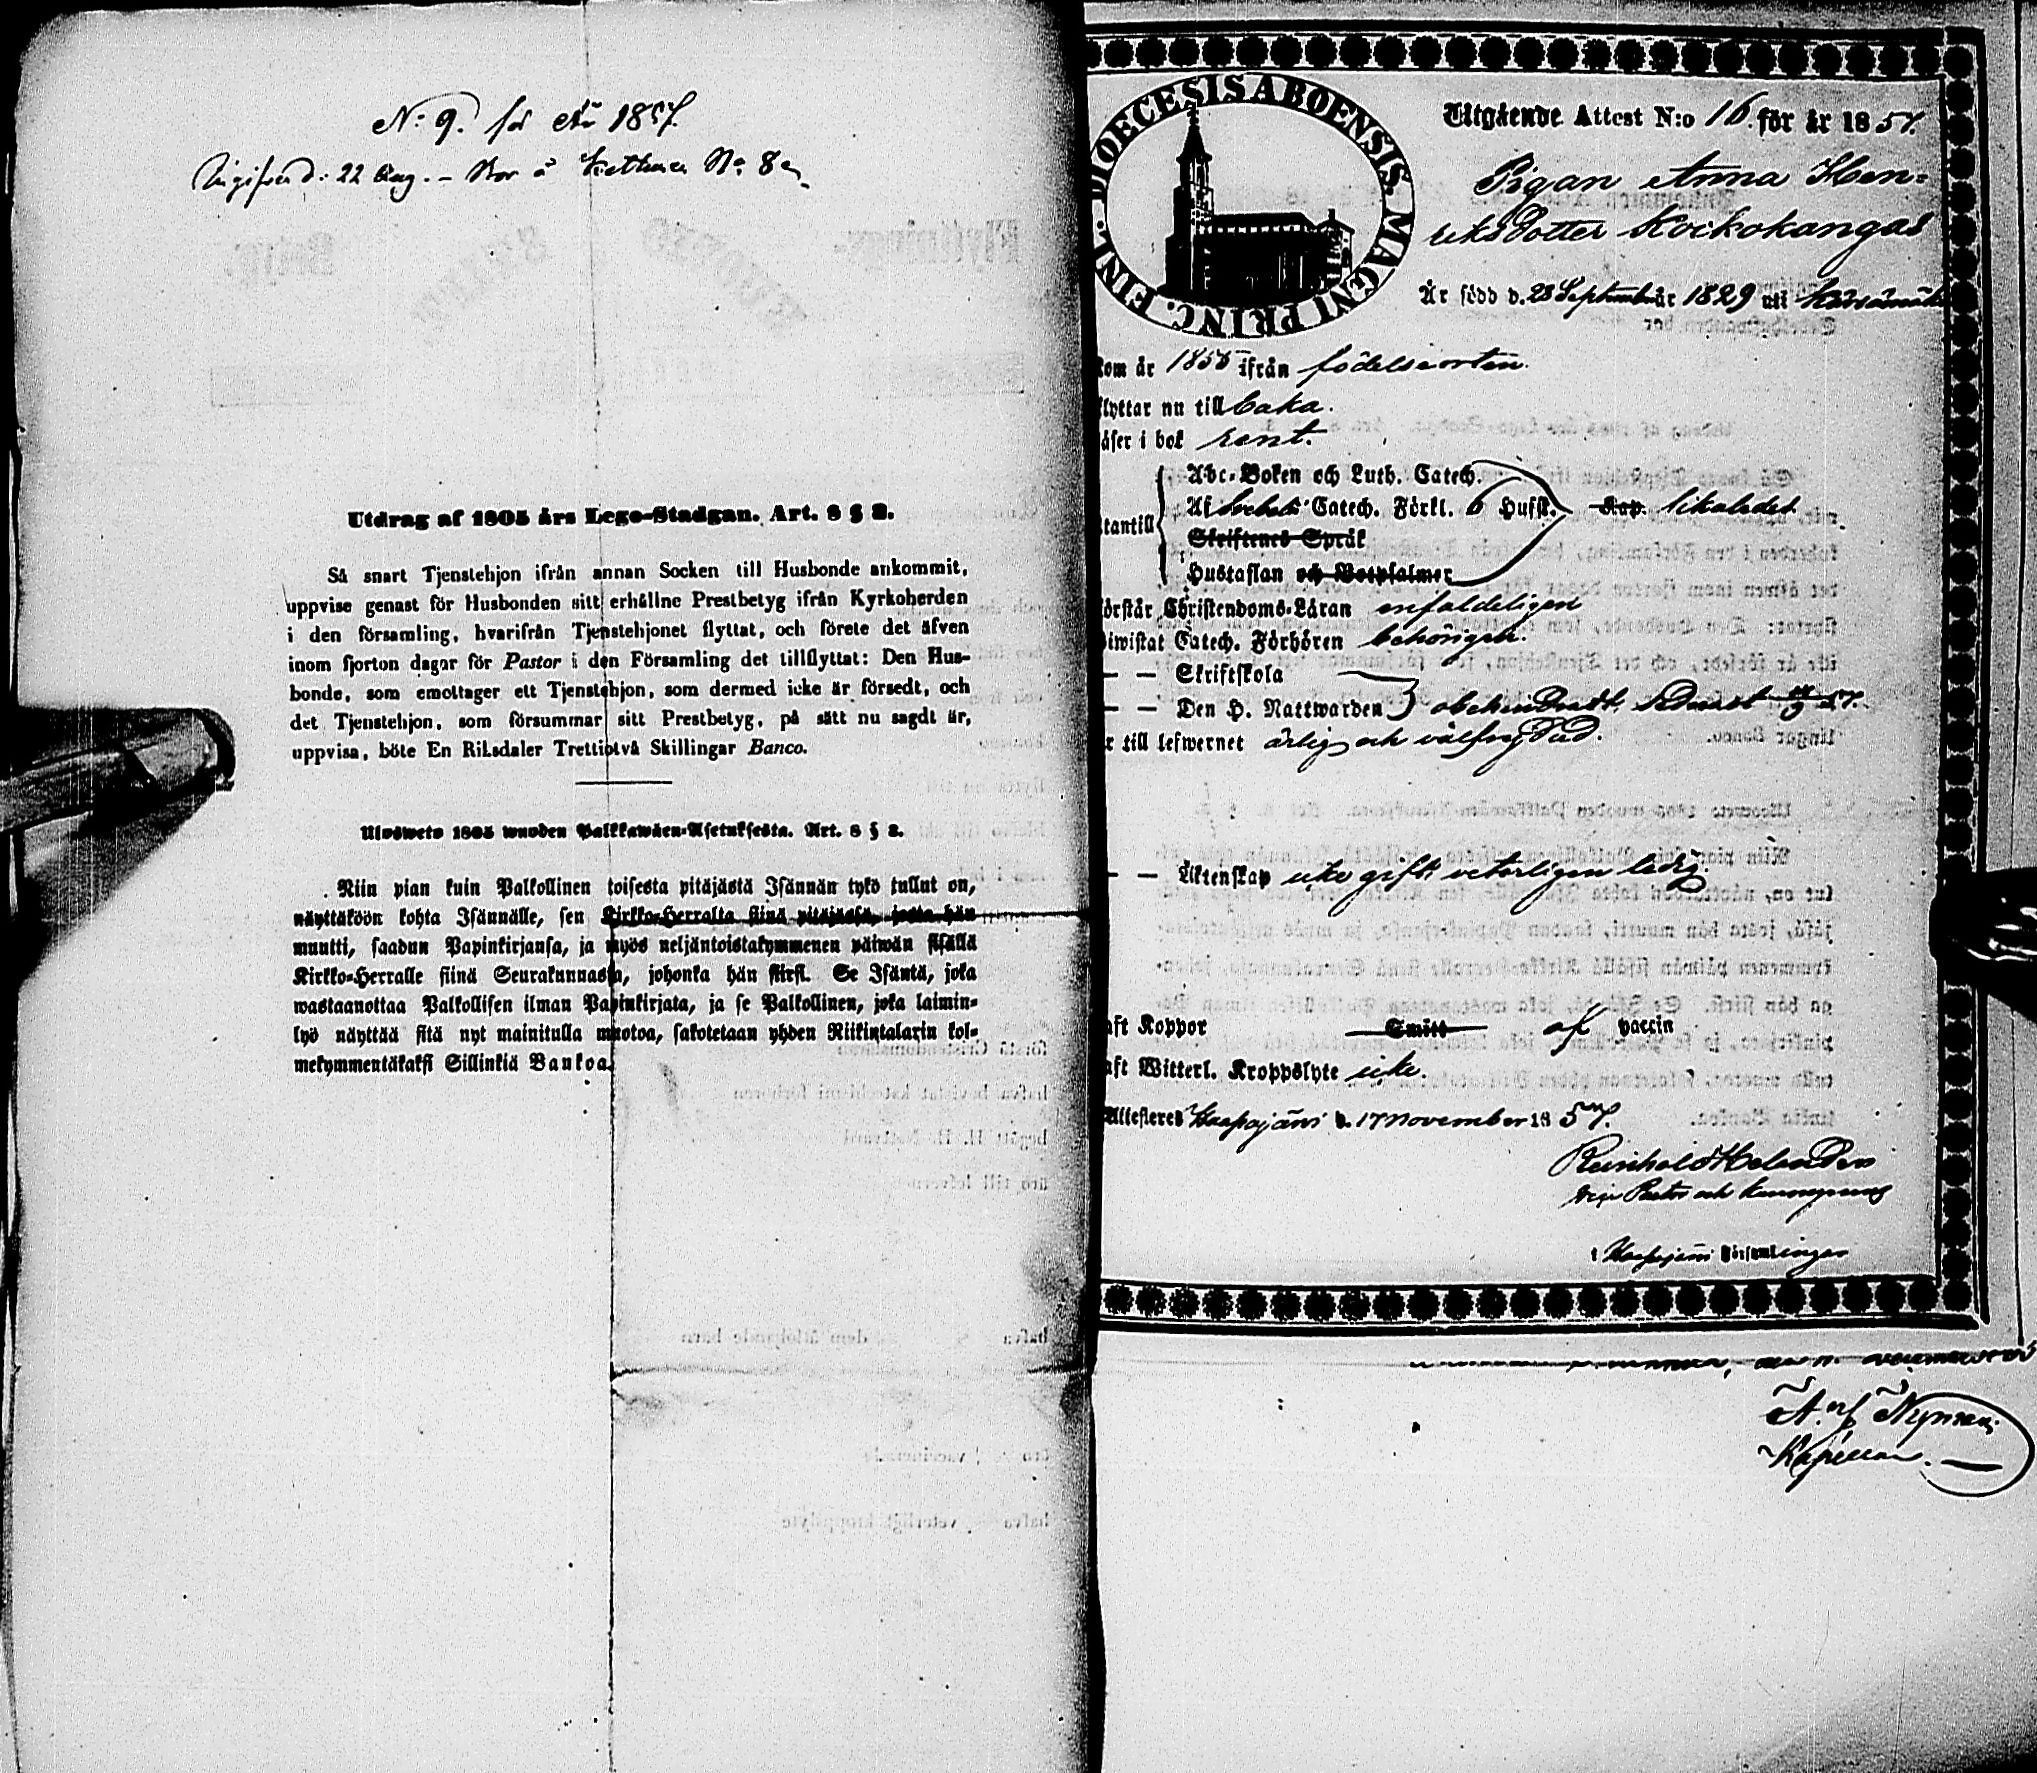 N:o 9. för år 1857.
d: 22 Aug. – No 8
Utdrag af 1805 års Lego-Stadgan. Art. 8 § 2.
Så snart Tjenstehjon ifrån annan Socken till Husbonde ankommit,
uppvise genast för Husbonden sitt erhållne Prestbetyg ifrån Kyrkoherden
i den församling, hvarifrån Tjenstehjonet flyttat, och förete det äfven
inom fjorton dagar för Pastor i den Församling det tillflyttat: Den Hus-
bonde, som emottager ett Tjenstehjon, som dermed icke är försedt, och
det Tjenstehjon, som försummar sitt Prestbetyg, på sätt nu sagdt är,
uppvisa, böte En Riksdaler Trettiotvå Skillingar Banco.
Ulosweto 1805 wuoden Palkkawäen-Asetuksesta. Art. 8 § 2.
Niin pian kuin Palkollinen toisesta pitäjästä Isännän tykö tullut on,
näyttäköön kohta Isännälle, sen Kirkko-Herralta siinä pitäjässä, josta hän
muutti, saadun Papinkirjansa, ja myös neljäntoistakymmenen päiwän sisällä
Kirkko-Herralle siinä Seurakunnassa, johonka hän siirsi. Se Isäntä, joka
wastaanottaa Palkollisen ilman Papinkirjata, ja se Palkollinen, joka laimin-
lyö näyttää sitä nyt mainitulla muotoa, sakotetaan yhden Riikintalarin kol-
mekymmentäkaksi Sillinkiä Bankoa.
DIOECESIS ABOENSIS. MAGNI PRINC. FINL.
Utgående Attest N:o 16. för år 1857.
Pigan Anna Hen-
riksdotter Kockokangas
Är född d. 28 September år 1829 uti Kärsämäki
kom år 1856 ifrån födelseorten.
flyttar nu tillbaka.
läser i bok rent.
Abc-Boken och Luth. Catech.
utantill Af Svebelii Catech. Förkl. 6 Hufst. Kap. likaledes
Skriftenes Språk
Hustaflan och Botpsalmer
förstår Christendoms-Läran enfaldeligen
biwistat Catech. Förhören behörigen.
— — Skriftskola
— — Den H. Nattwarden obehindradt, sednast 57.
är till lefwernet ärlig och välfrejdad.
— — Äktenskap icke gift veterligen ledig.
haft Koppor Smitt af vaccin
haft Witterl. Kroppslyte icke.
Attesteras Haapajärvi d. 17 November 1857.
Reinhold Helander
Vice Pastor och
i Haapajärvi Församlingar
Nyman
Kapellan.